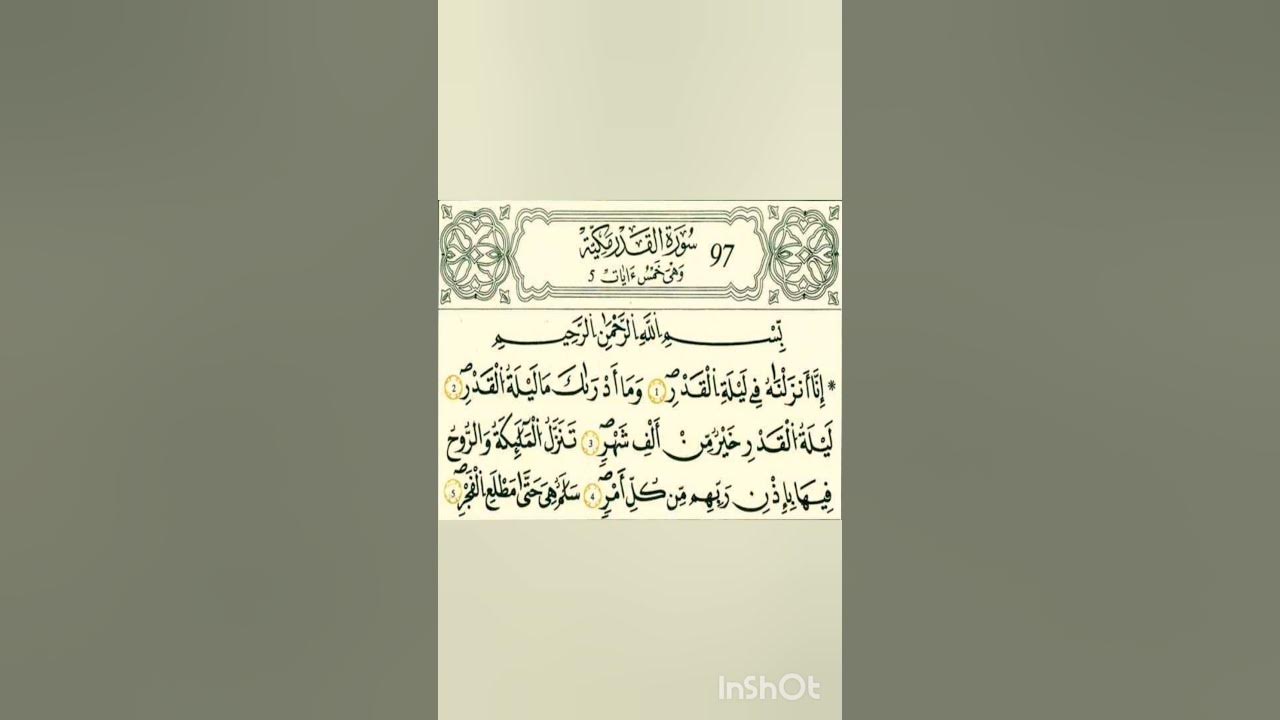 97 سُورَةُ الْقَدْرِ مَكِّيَّة
وَهْيَ خَمْسُ ءَايَاتٍ 5
بِسْمِ اِللَّهِ اِلرَّحْمَٰنِ اِلرَّحِيمِ
* إِنَّا أَنزَلْنَٰهُ فِے لَيْلَةِ اِلْقَدْرِۖ 1 وَمَا أَدْرَىٰكَ مَا لَيْلَةُ اُلْقَدْرِۖ 2
لَيْلَةُ اُلْقَدْرِ خَيْرٌ مِّنْ أَلْفِ شَهْرٍۖ 3 تَنَزَّلُ اُلْمَلَٰٓئِكَةُ وَالرُّوحُ
فِيهَا بِإِذْنِ رَبِّهِم مِّن كُلِّ أَمْرٍۖ 4 سَلَٰمٌ هِيَ حَتَّىٰ مَطْلَعِ اِلْفَجْرِۖ 5
InShOt